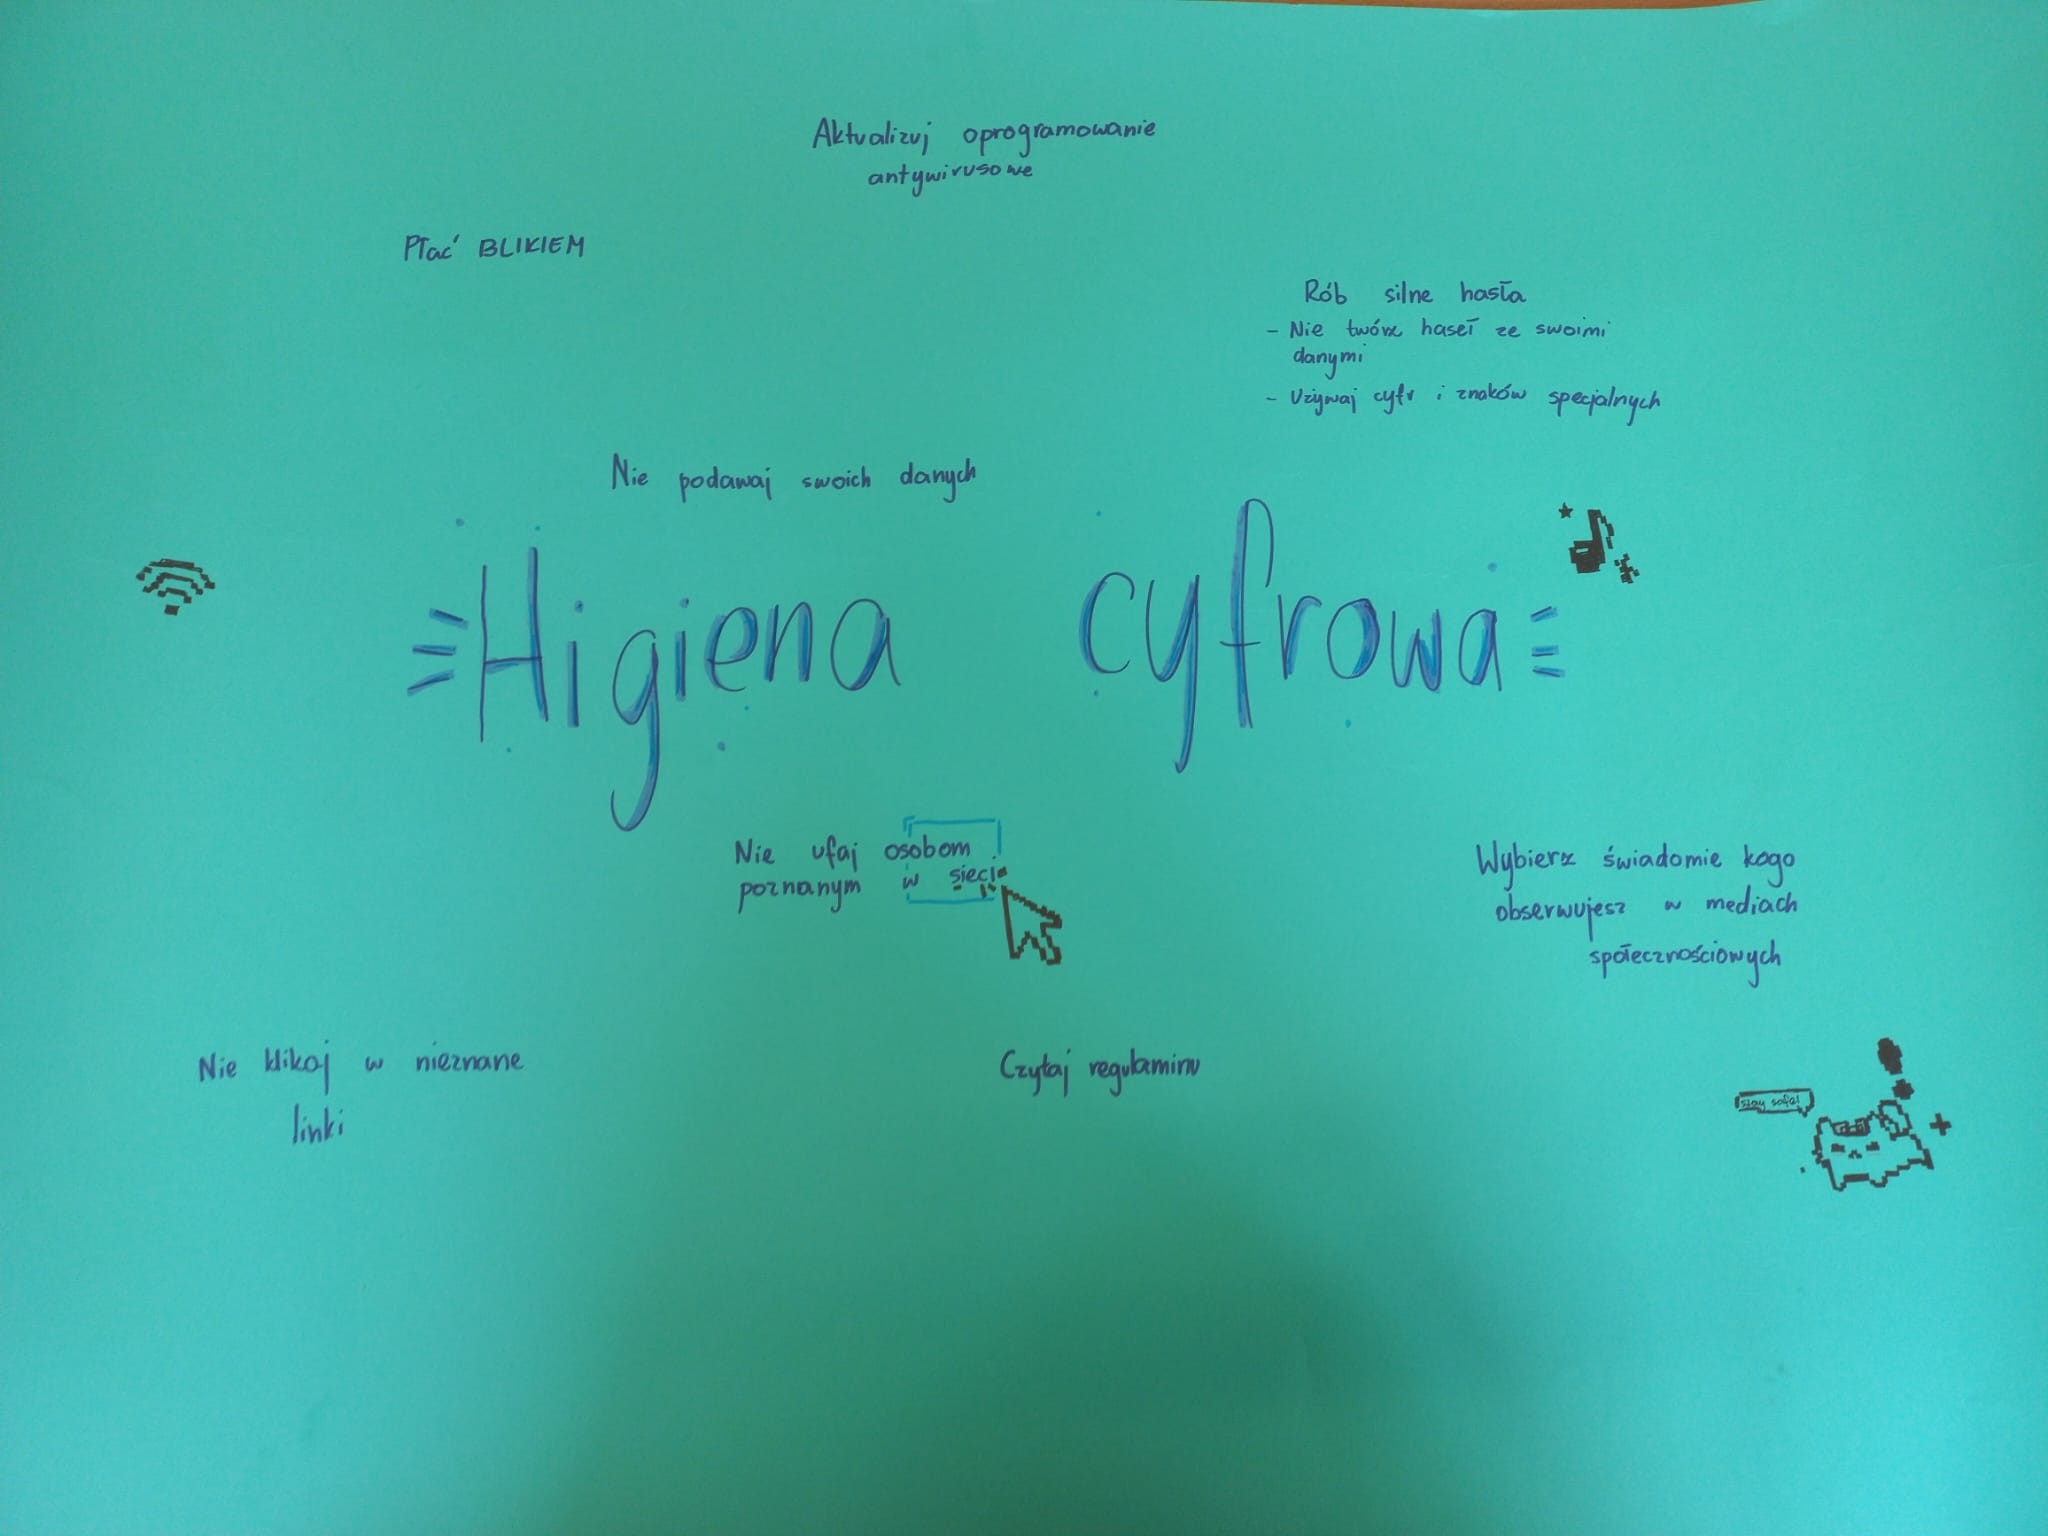 Aktualizuj oprogramowanie
antywirusowe
Płać BLIKIEM
Rób silne hasła
- Nie twórz haseł ze swoimi
danymi
- Używaj cyfr i znaków specjalnych
Nie podawaj swoich danych
Higiena cyfrowa
Nie ufaj osobom
poznanym w sieci
Wybierz świadomie kogo
obserwujesz w mediach
społecznościowych
Nie klikaj w nieznane
linki
Czytaj regulaminy
stay safe!